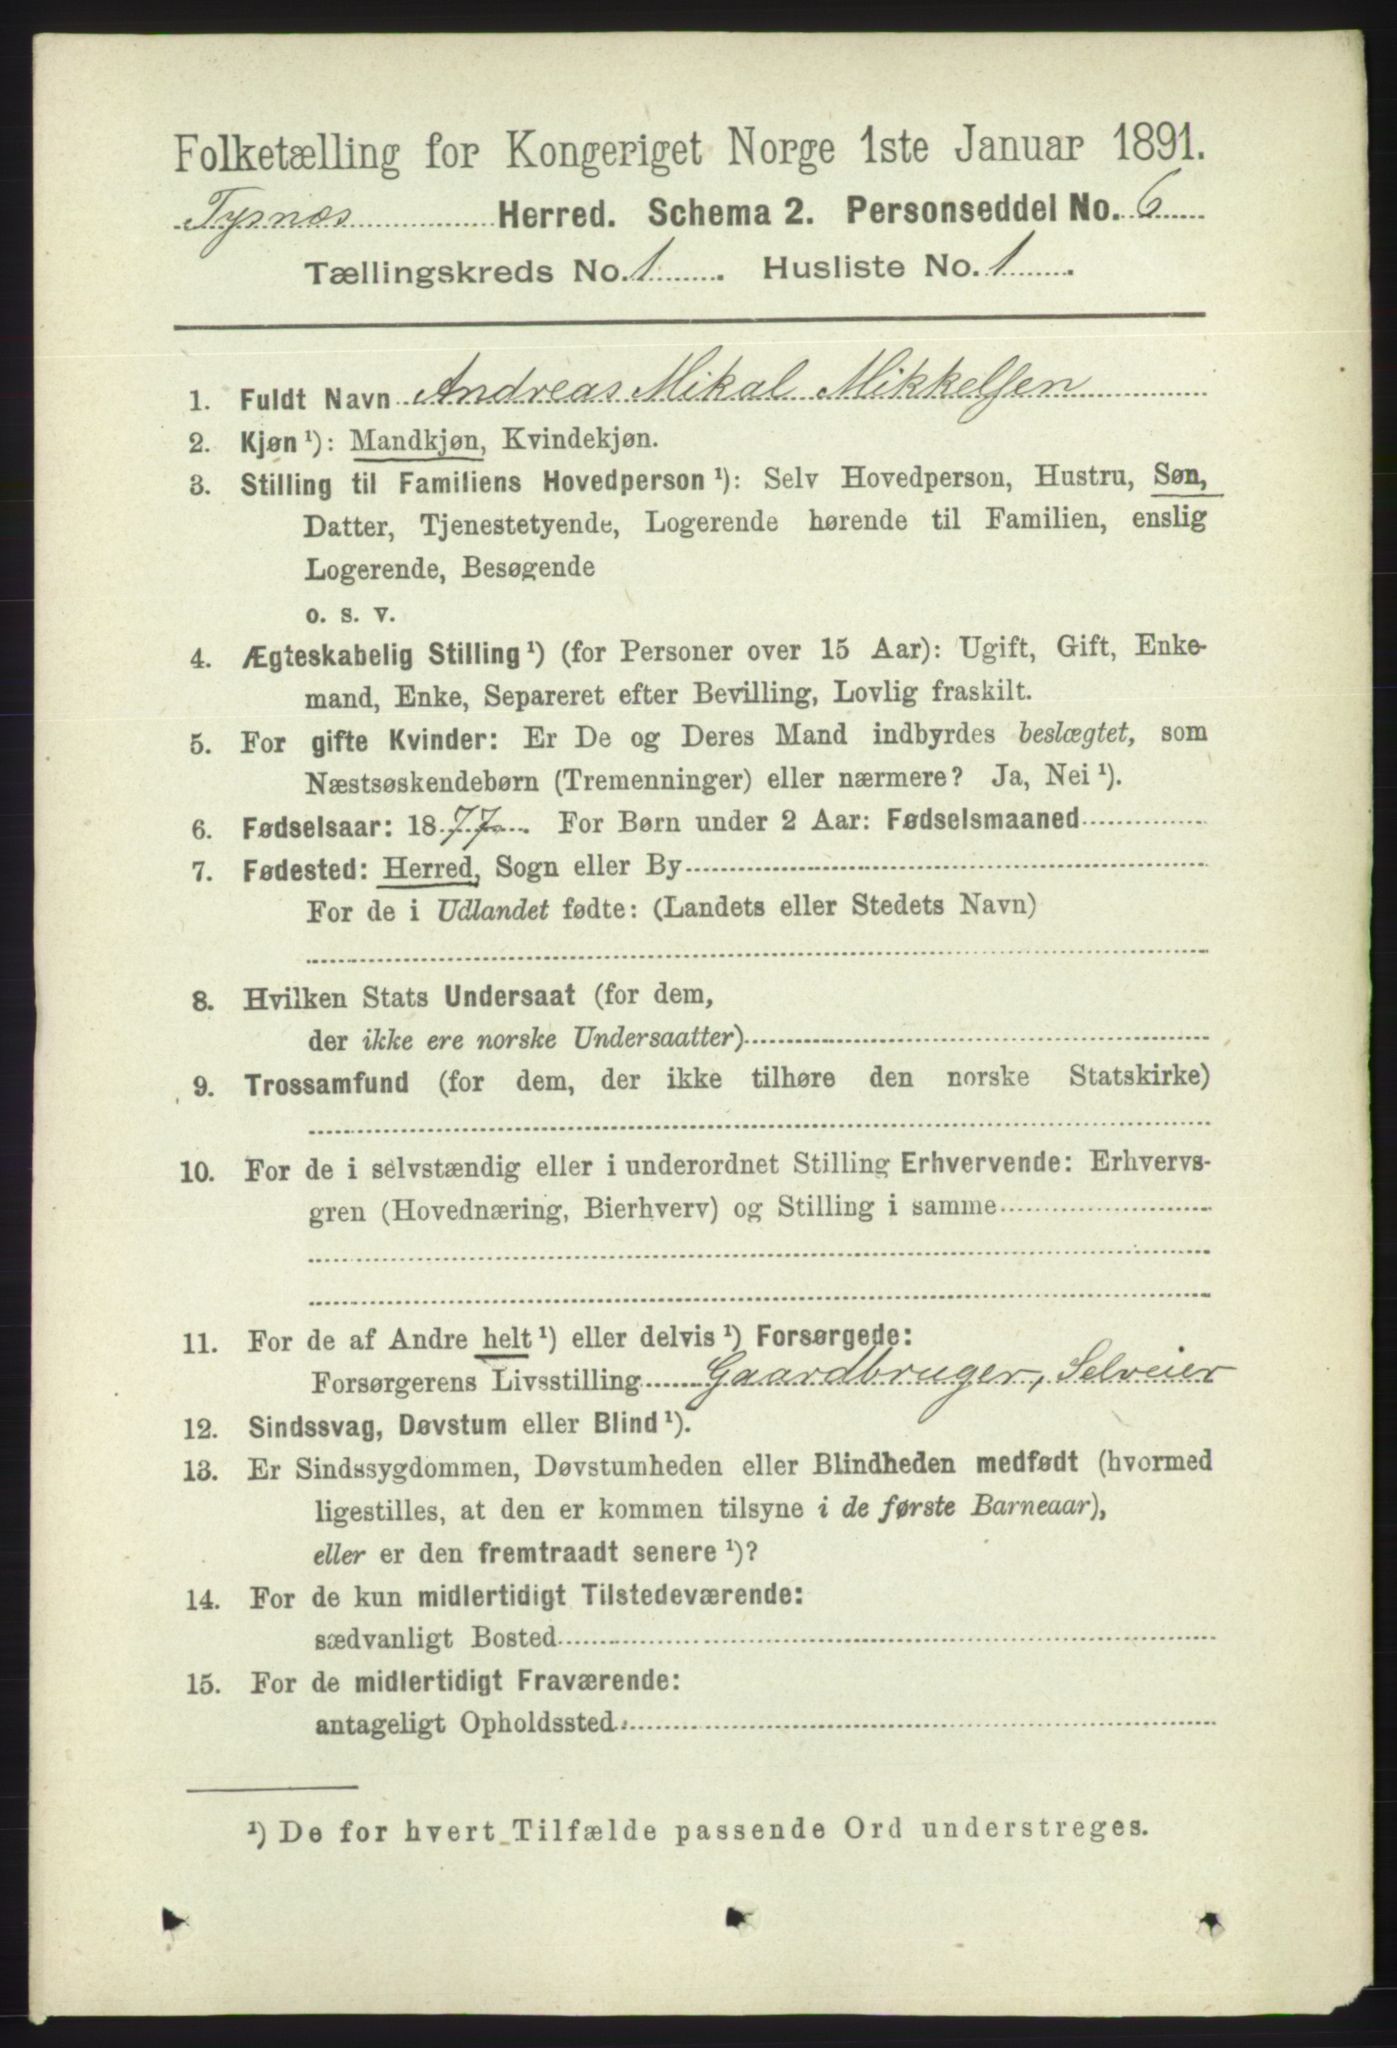 Folketælling for Kongeriget Norge 1ste Januar 1891.
Tysnæs Herred. Schema 2. Personseddel No. 6
Tællingskreds No. 1. Husliste No. 1.
1. Fuldt Navn Andreas Mikal Mikkelsen
2. Kjøn ¹): Mandkjøn, Kvindekjøn.
3. Stilling til Familiens Hovedperson ¹): Selv Hovedperson, Hustru, Søn,
Datter, Tjenestetyende, Logerende hørende til Familien, enslig
Logerende, Besøgende
o. s. v.
4. Ægteskabelig Stilling ¹) (for Personer over 15 Aar): Ugift, Gift, Enke-
mand, Enke, Separeret efter Bevilling, Lovlig fraskilt.
5. For gifte Kvinder: Er De og Deres Mand indbyrdes beslægtet, som
Næstsøskendebørn (Tremenninger) eller nærmere? Ja, Nei ¹).
6. Fødselsaar: 1877. For Børn under 2 Aar: Fødselsmaaned
7. Fødested: Herred, Sogn eller By
For de i Udlandet fødte: (Landets eller Stedets Navn)
8. Hvilken Stats Undersaat (for dem,
der ikke ere norske Undersaatter)
9. Trossamfund (for dem, der ikke tilhøre den norske Statskirke)
10. For de i selvstændig eller i underordnet Stilling Erhvervende: Erhvervs-
gren (Hovednæring, Bierhverv) og Stilling i samme
11. For de af Andre helt ¹) eller delvis ¹) Forsørgede:
Forsørgerens Livsstilling Gaardbruger, Selveier
12. Sindssvag, Døvstum eller Blind ¹).
13. Er Sindssygdommen, Døvstumheden eller Blindheden medfødt (hvormed
ligestilles, at den er kommen tilsyne i de første Barneaar),
eller er den fremtraadt senere ¹)?
14. For de kun midlertidigt Tilstedeværende:
sædvanligt Bosted
15. For de midlertidigt Fraværende:
antageligt Opholdssted
¹) De for hvert Tilfælde passende Ord understreges.